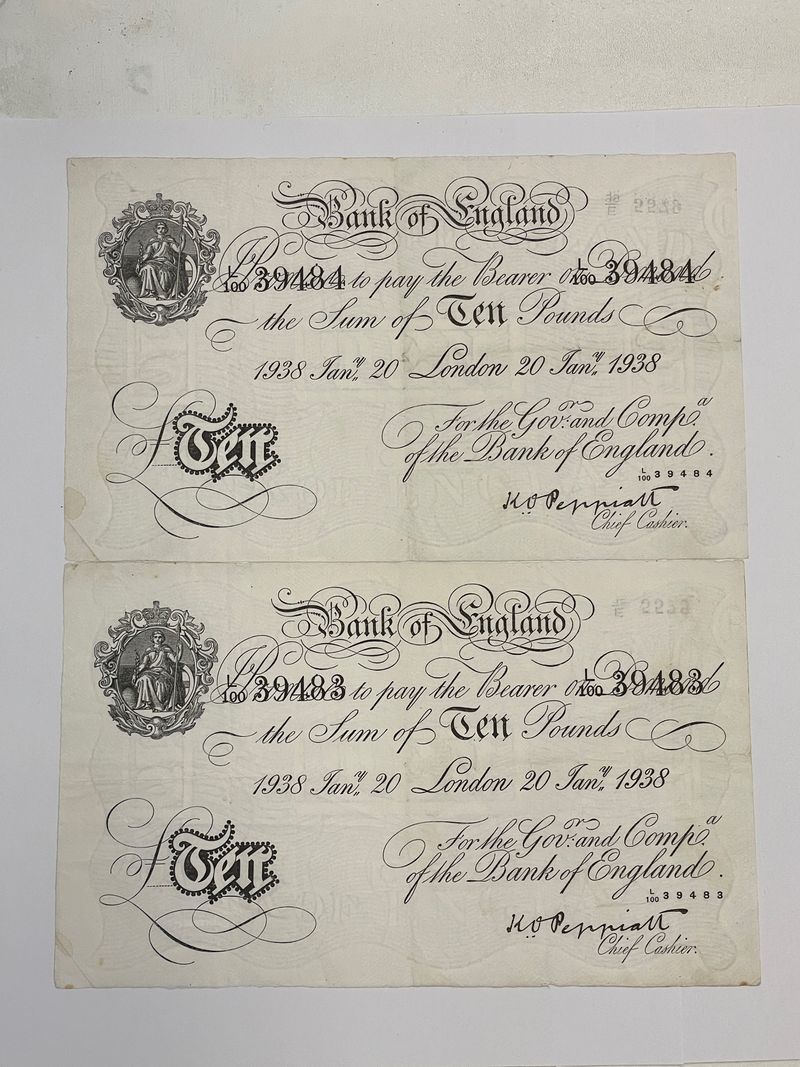 Bank of England
L/100 39484 to pay the Bearer on Demand L/100 39484
the Sum of Ten Pounds
1938 Jany. 20 London 20 Jany. 1938
For the Govr. and Compa.
of the Bank of England.
£Ten
L/100 39484
K.O. Peppiatt
Chief Cashier.
Bank of England
L/100 39483 to pay the Bearer on Demand L/100 39483
the Sum of Ten Pounds
1938 Jany. 20 London 20 Jany. 1938
For the Govr. and Compa.
of the Bank of England.
£Ten
L/100 39483
K.O. Peppiatt
Chief Cashier.